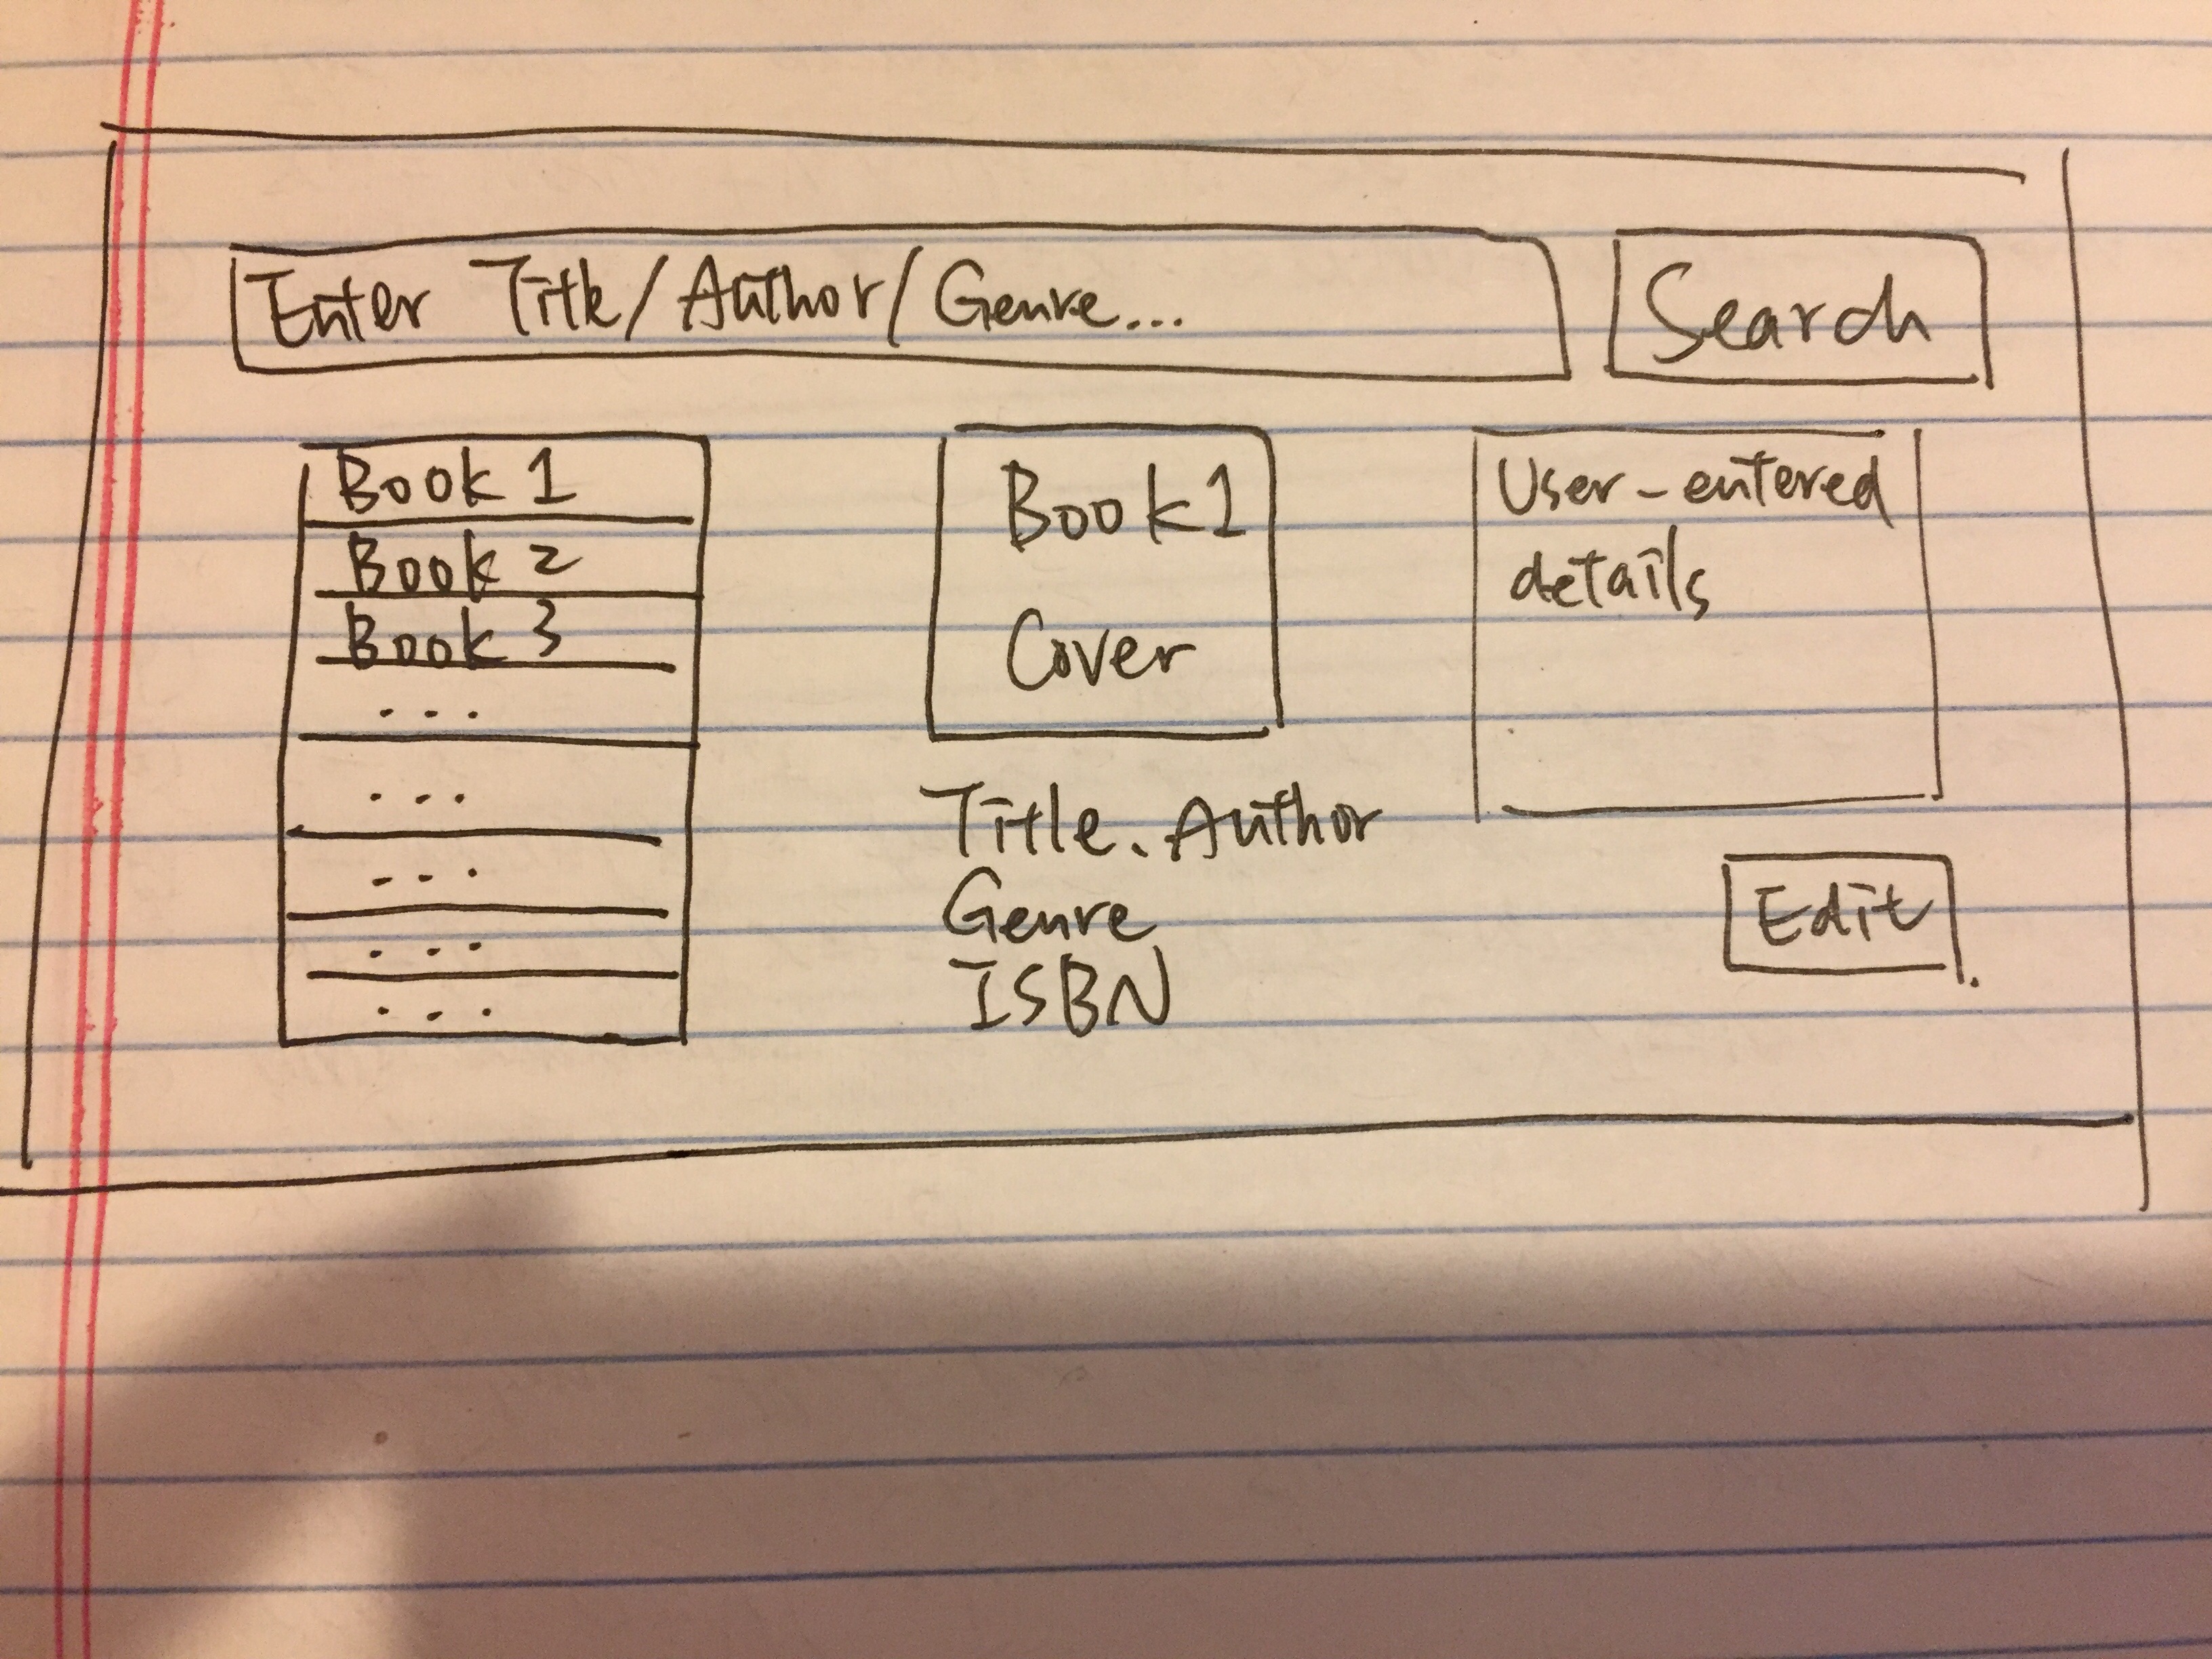 Enter Title/Author/Genre...
Search
Book 1
Book 2
Book 3
...
...
...
...
...
Book 1
Cover
Title. Author
Genre
ISBN
User-entered
details
Edit